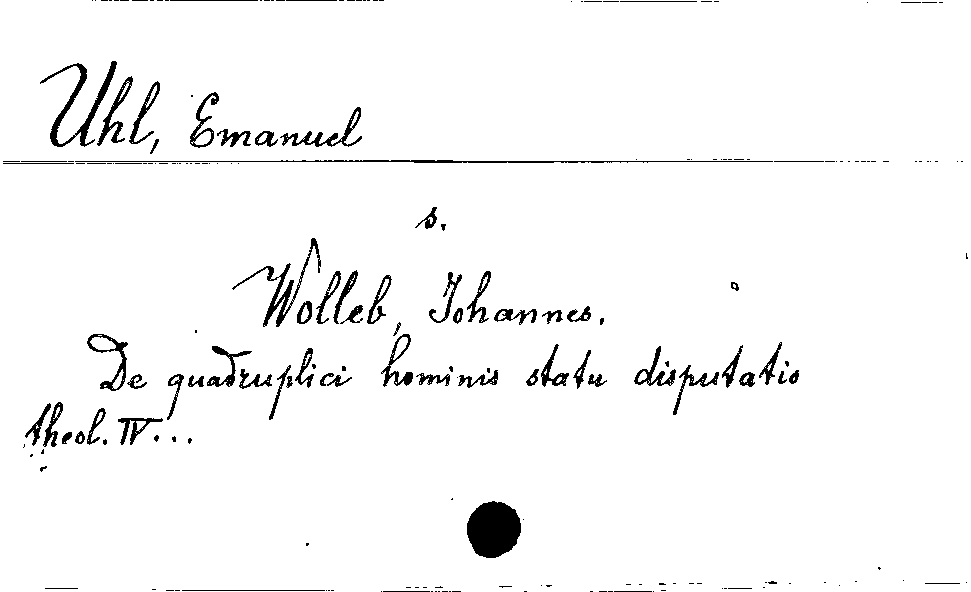 Uhl, Emanuel
s.
Wolleb, Johannes.
De quadruplici hominis statu disputatio
theol. IV...